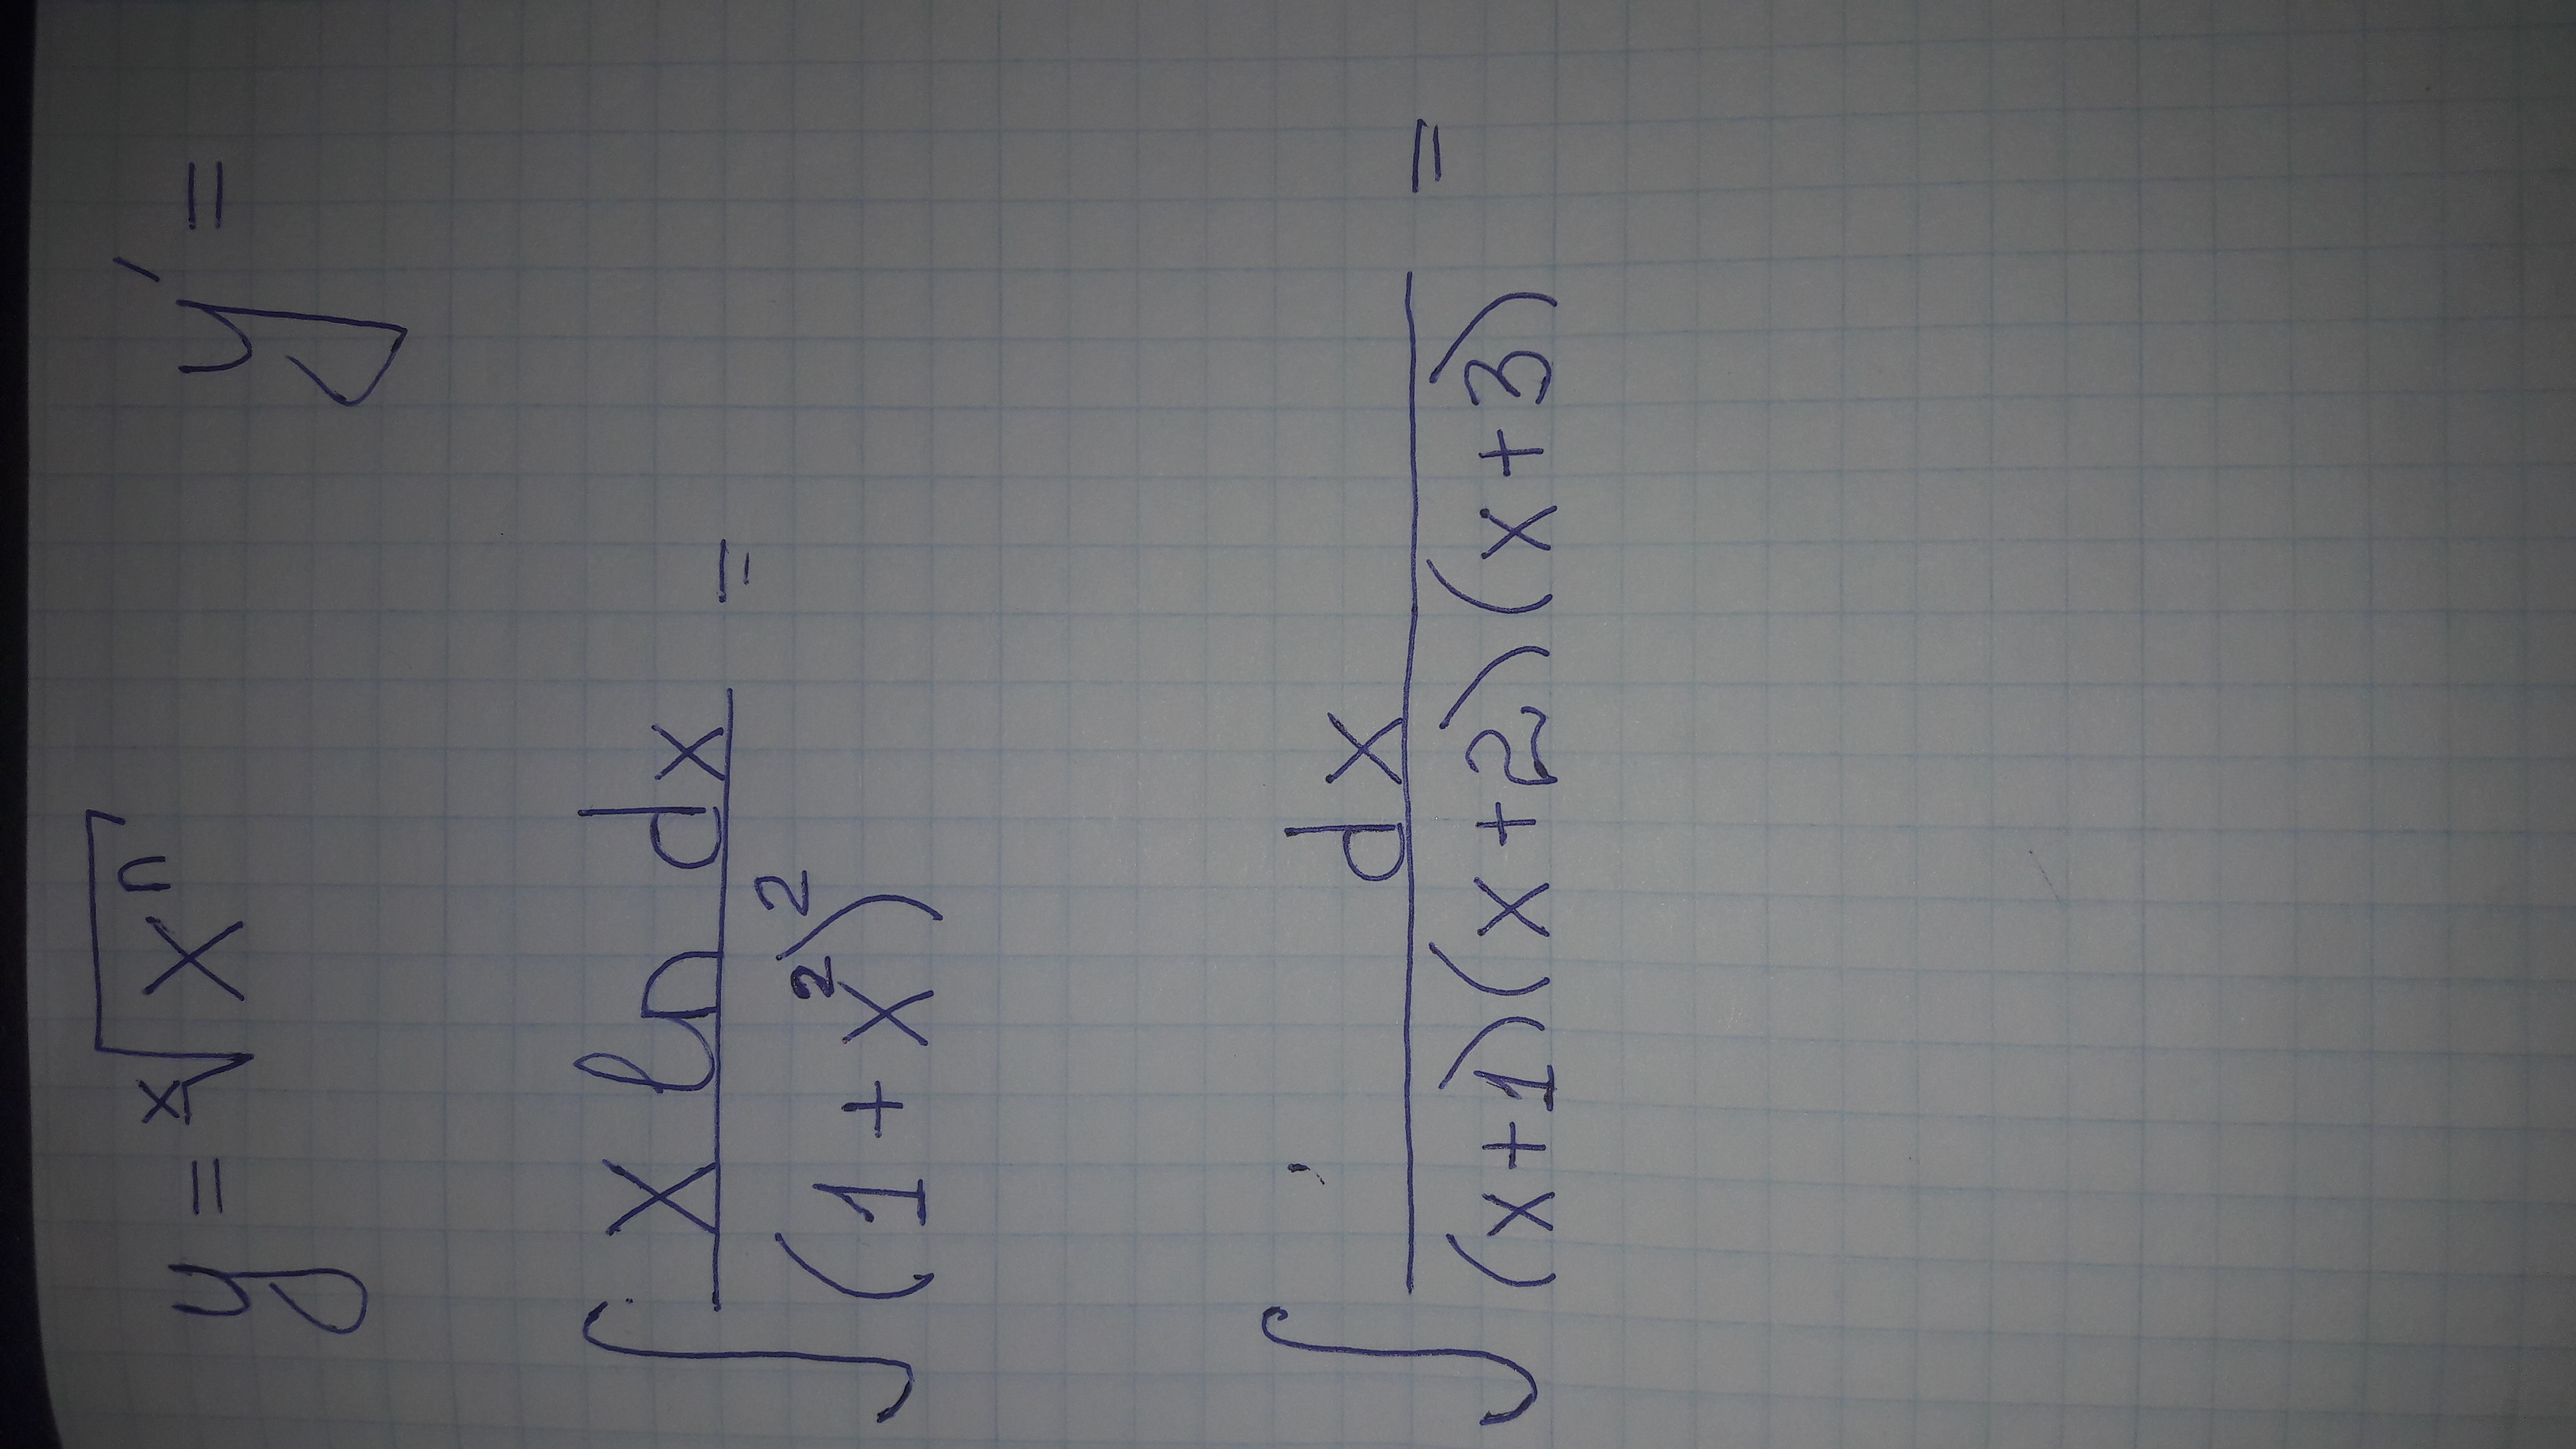 y = ˣ√xⁿ y' =
∫ x ln dx / (1 + x²)² =
∫ dx / (x+1)(x+2)(x+3) =